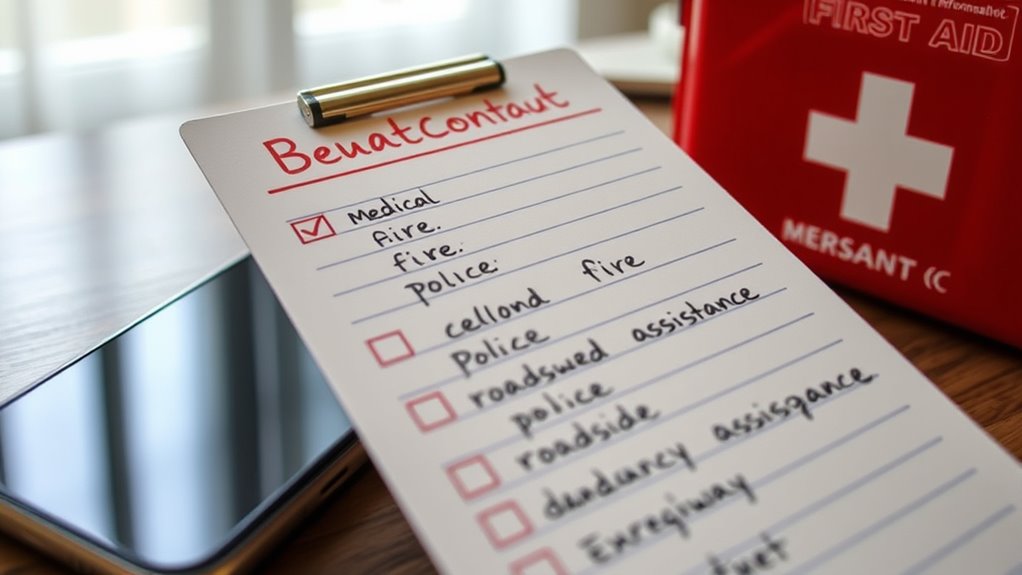 BenatContaut
Medical
fire.
fire.
police:
cellond fire
Police
roadswed assistance
police
roadside
dendurcy assisgance
Enregiway
FIRST AID
MERSANT (C